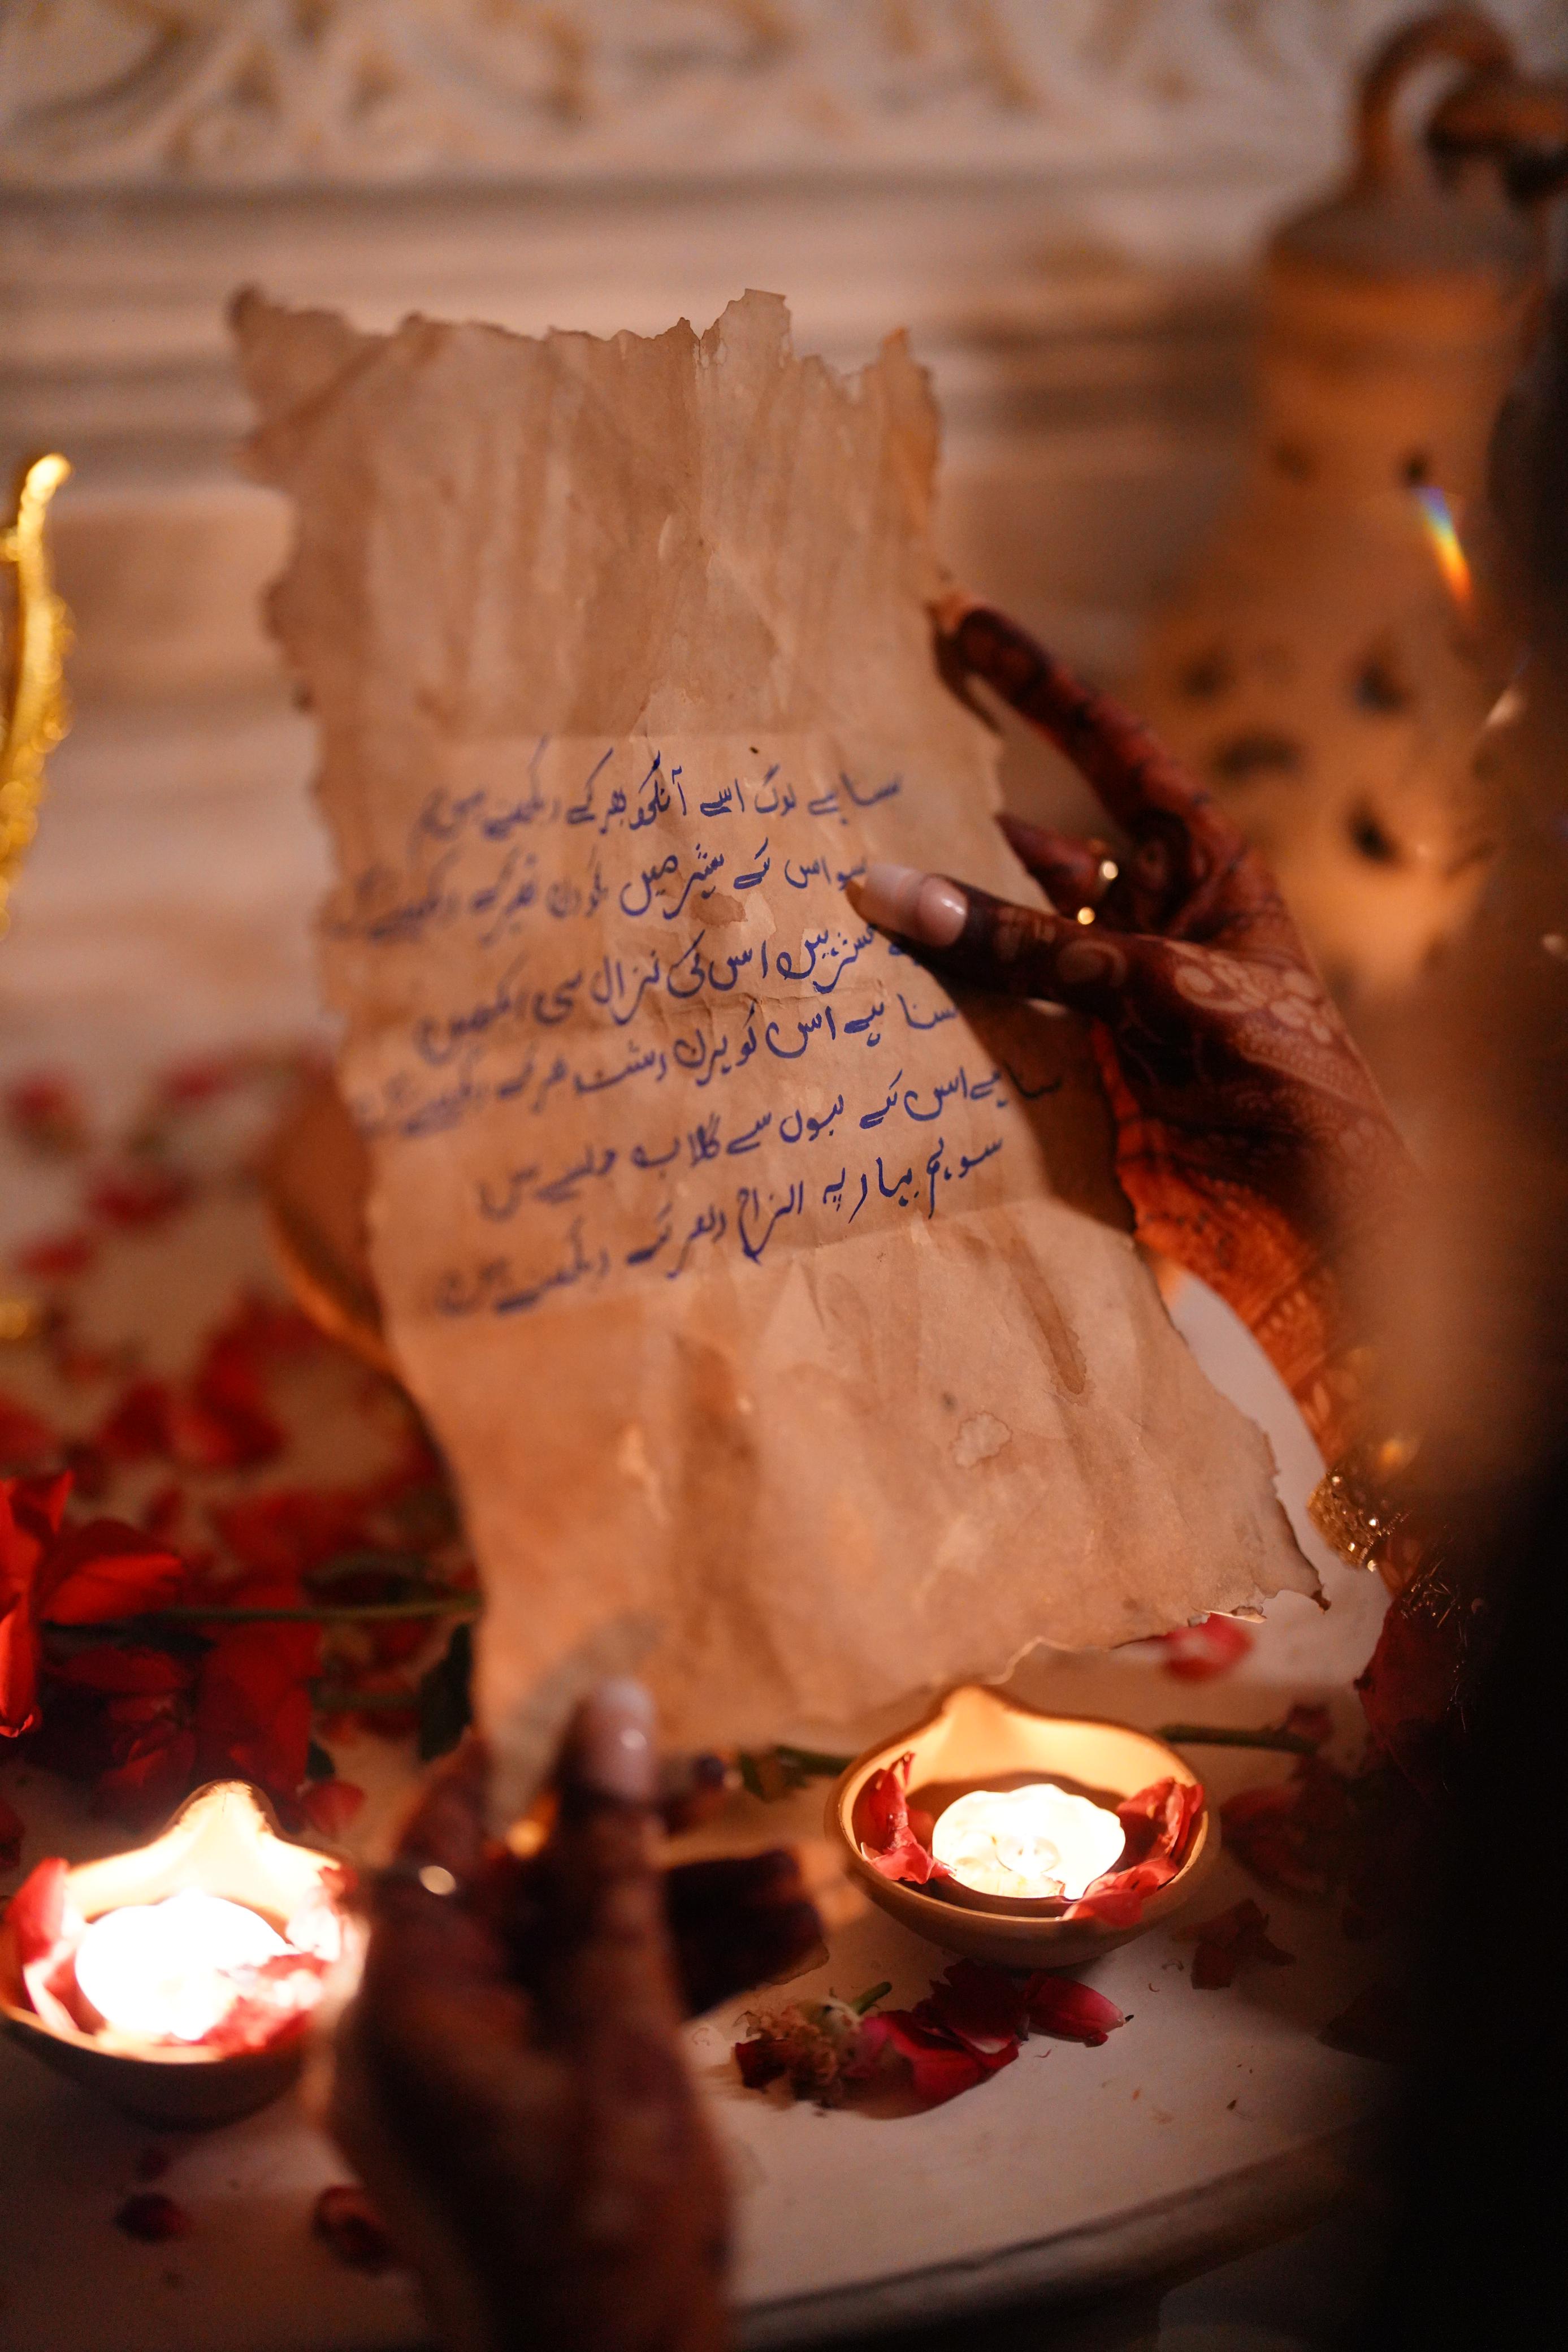 سنا ہے لوگ اسے آنکھ بھر کے دیکھتے ہیں
سو اس کے شہر میں کچھ دن ٹھہر کے دیکھتے ہیں
حشر ہیں اس کی غزال سی آنکھیں
سنا ہے اس کو ہرن دشت بھر کے دیکھتے ہیں
سنا ہے اس کے لبوں سے گلاب جلتے ہیں
سو ہم بہار پہ الزام دھر کے دیکھتے ہیں